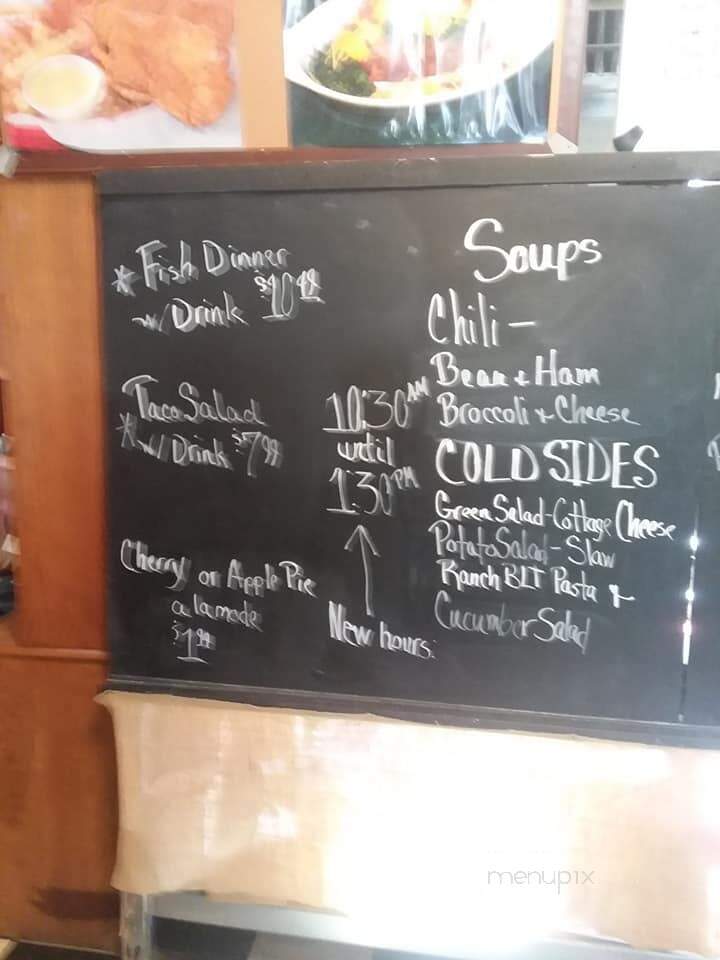 * Fish Dinner
w/ Drink $10.49
Taco Salad
* w/ Drink $7.99
Cherry or Apple Pie
a la mode
$1.99
10:30 AM
until
1:30 PM
New hours:
Soups
Chili -
Bean + Ham
Broccoli + Cheese
COLD SIDES
Green Salad - Cottage Cheese
Potato Salad - Slaw
Ranch BLT Pasta +
Cucumber Salad
menupix